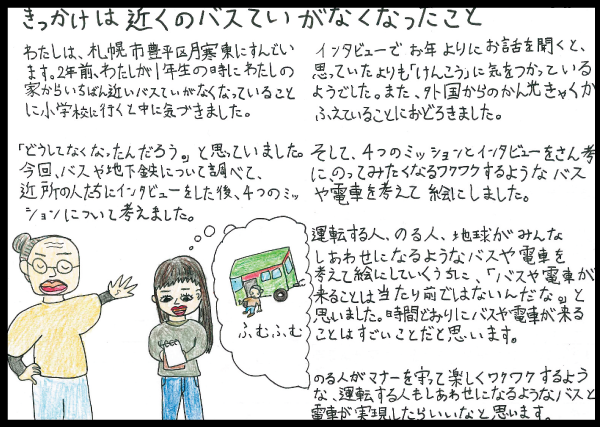 きっかけは近くのバスていがなくなったこと
わたしは、札幌市豊平区月寒東にすんでい
ます。2年前、わたしが1年生の時にわたしの
家からいちばん近いバスていがなくなっていること
に小学校に行くと中に気づきました。
「どうしてなくなったんだろう。」と思っていました。
今回、バスや地下鉄について調べて、
近所の人たちにインタビューをした後、4つのミッ
ションについて考えました。
ふむふむ
インタビューでお年よりにお話を聞くと、
思っていたよりも「けんこう」に気をつかっている
ようでした。また、外国からのかん光きゃくが
ふえていることにおどろきました。
そして、4つのミッションとインタビューをさん考
にのってみたくなるワクワクするようなバス
や電車を考えて絵にしました。
運転する人、のる人、地球がみんな
しあわせになるようなバスや電車を
考えて絵にしていくうちに、「バスや電車が
来ることは当たり前ではないんだな。」と
思いました。時間どおりにバスや電車が来る
ことはすごいことだと思います。
のる人がマナーを守って楽しくワクワクするよう
な、運転する人もしあわせになるようなバスと
電車が実現したらいいなと思います。